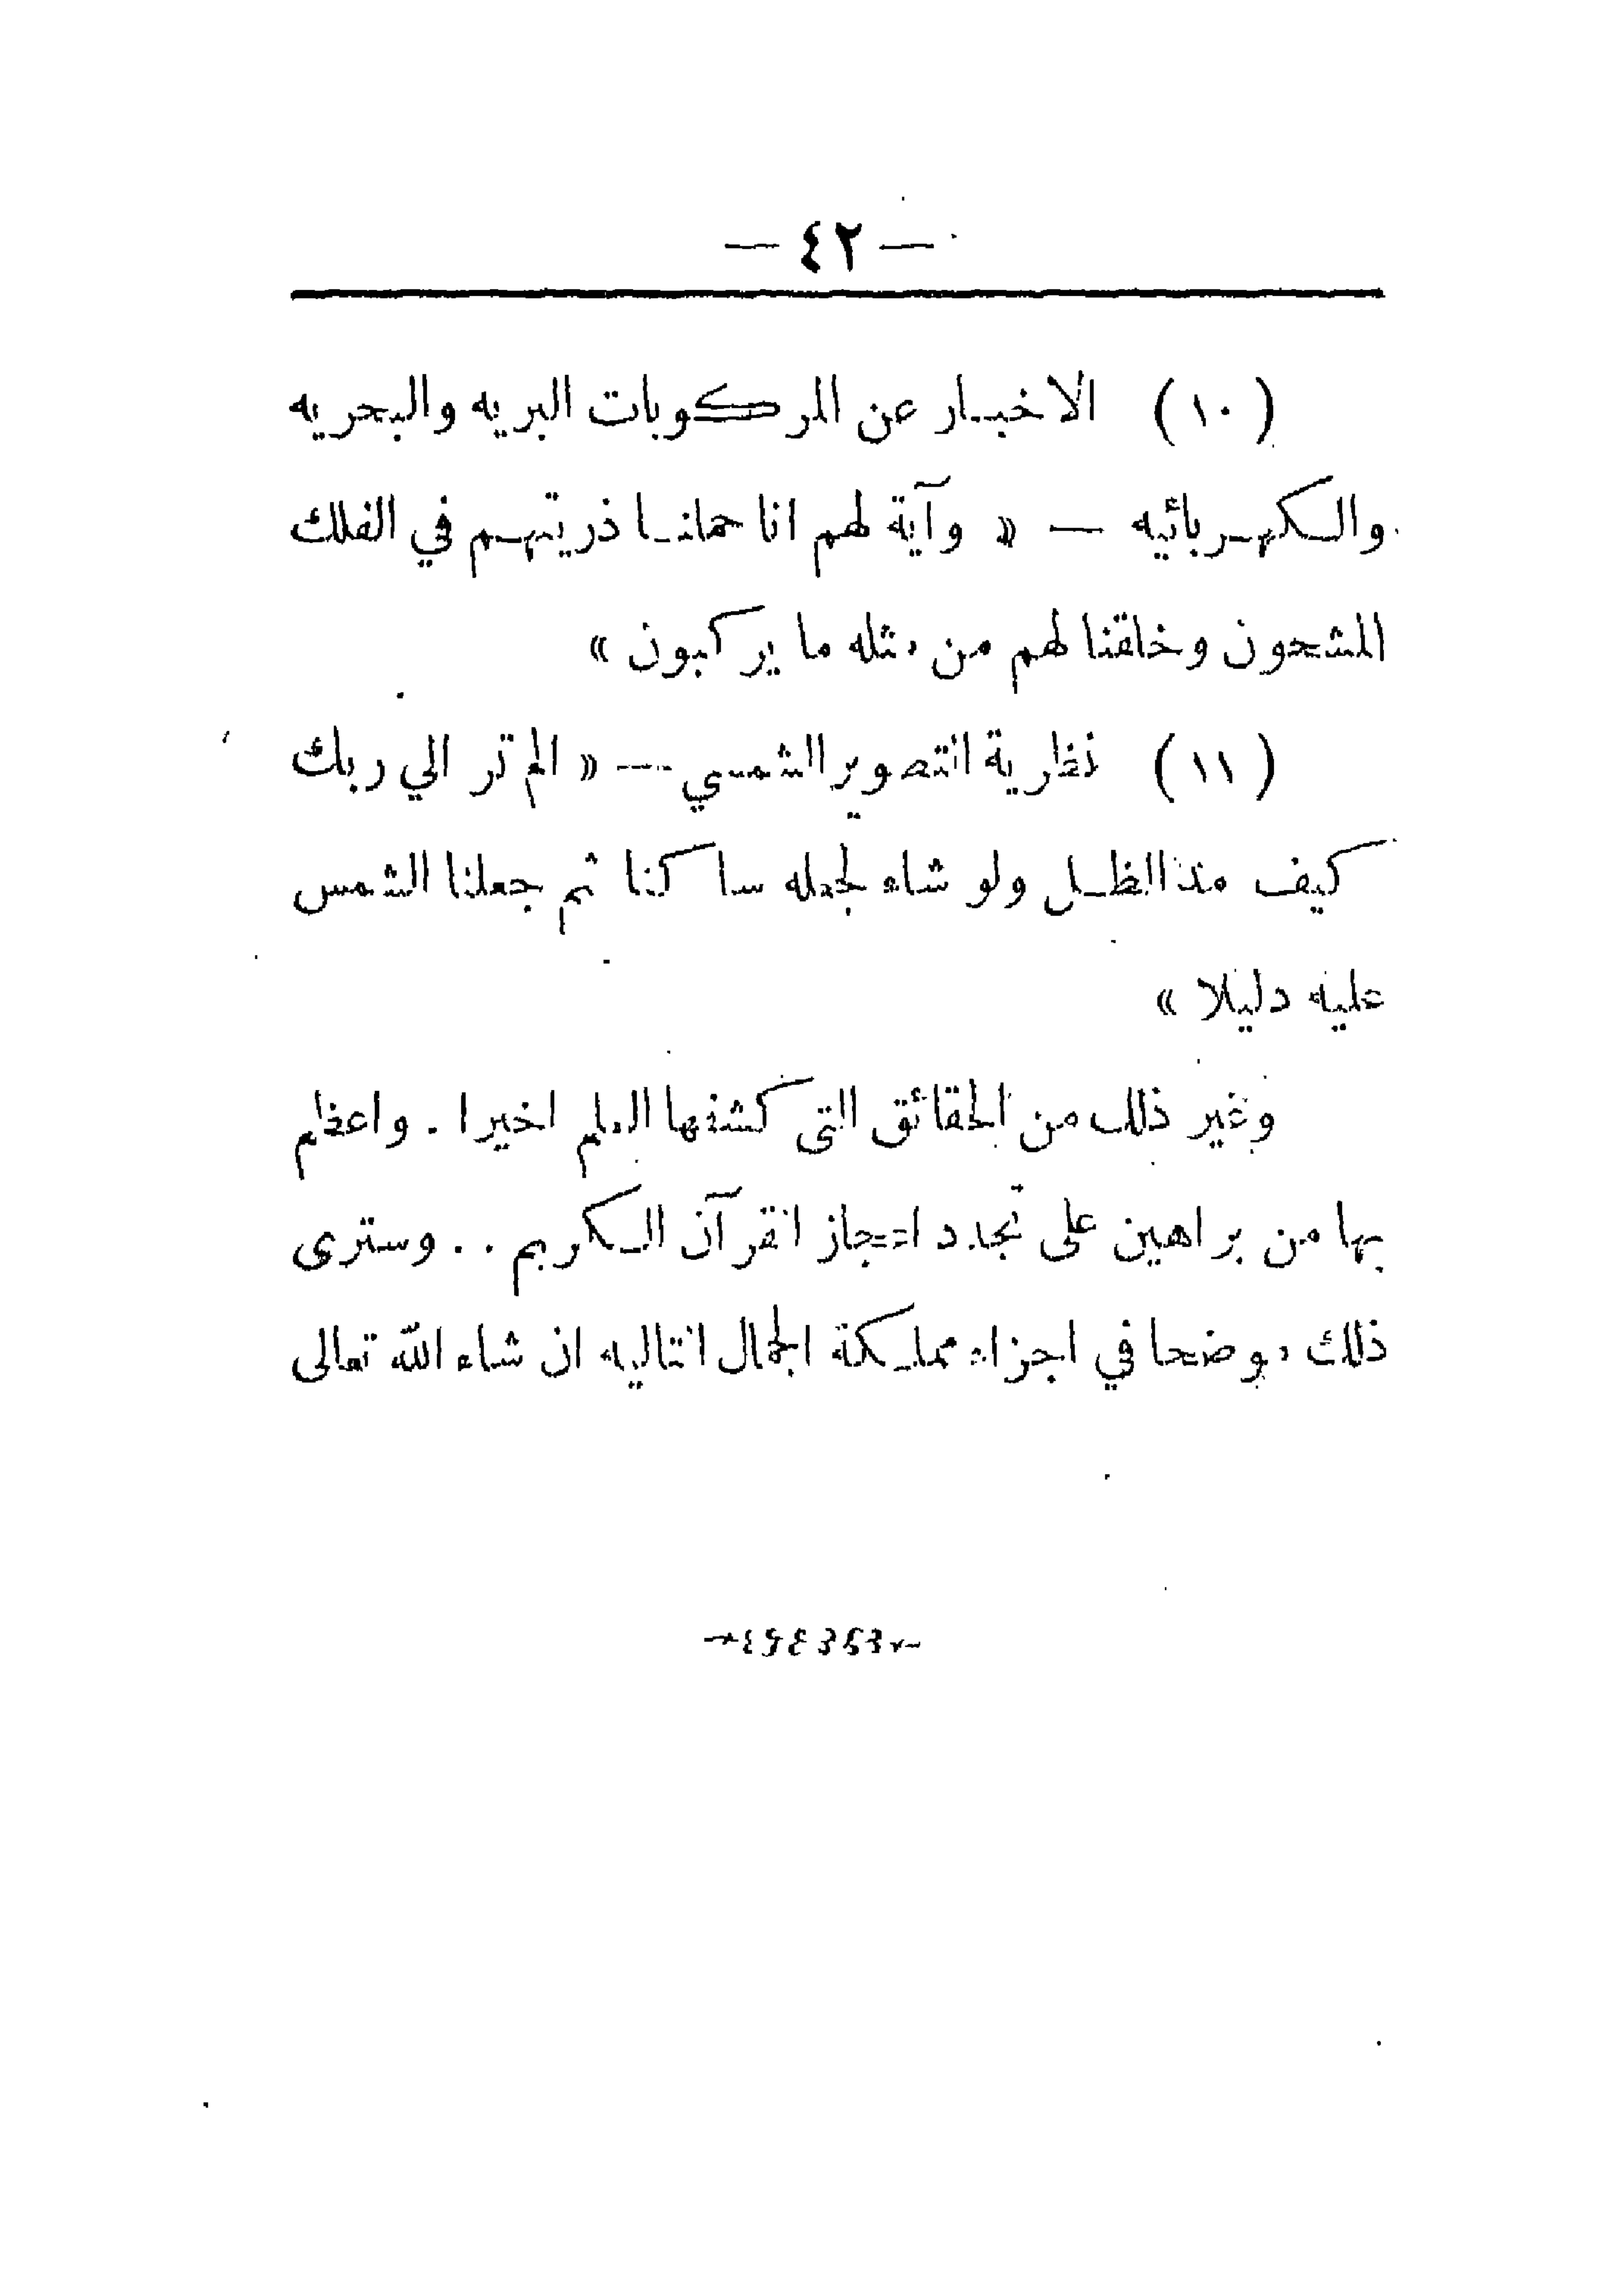 — ٤٢ —
( ١٠ ) الاخبار عن المركوبات البريه والبحريه
والكهربائيه — « وآية لهم انا حملنا ذريتهم في الفلك
المشحون وخلقنا لهم من مثله ما يركبون »
( ١١ ) نظرية التصوير الشمسي — « الم تر الي ربك
كيف مد الظل ولو شاء لجعله ساكنا ثم جعلنا الشمس
عليه دليلا »
وغير ذلك من الحقائق التى كشفها العلم اخيرا . واعظم
بها من براهين على تجدد اعجاز القرآن الكريم . . وسترى
ذلك موضحا في اجزاء مملكة الجمال التاليه ان شاء الله تعالى